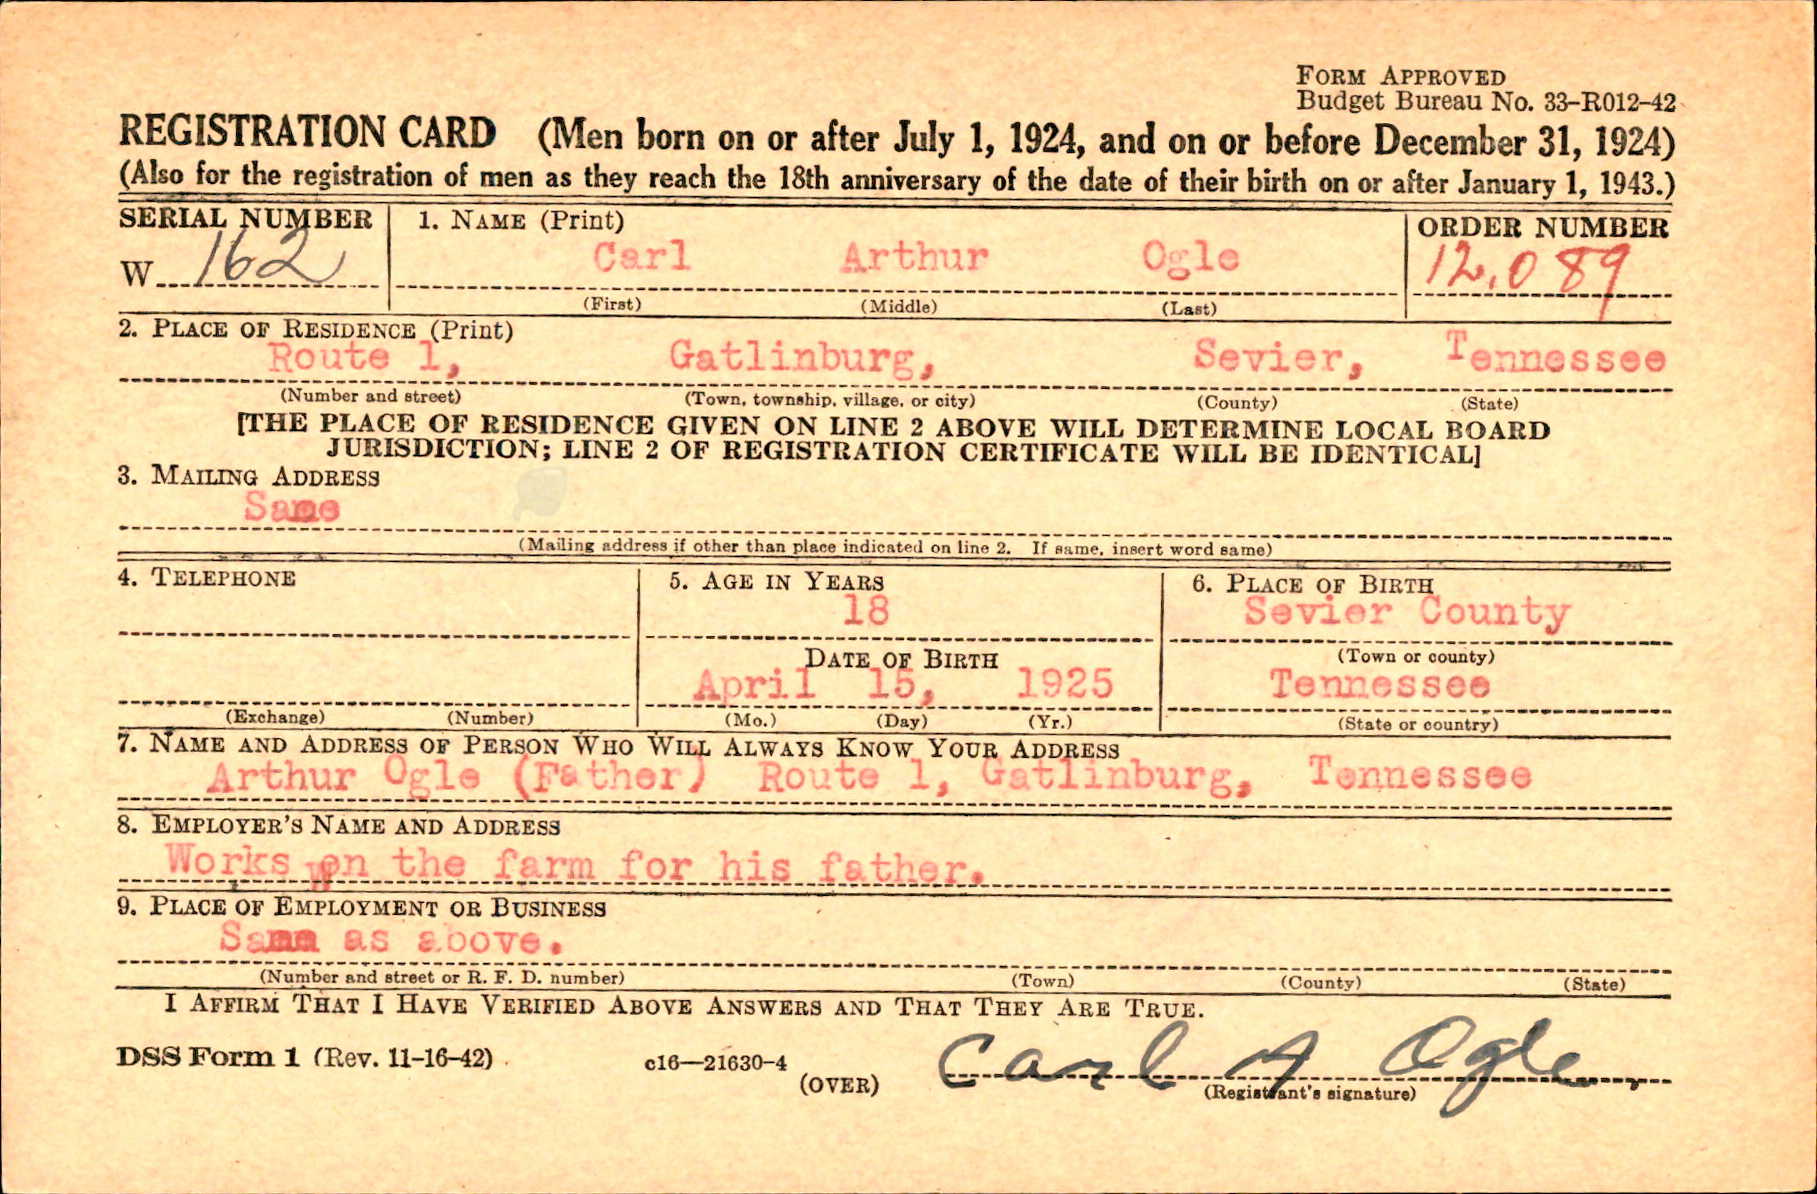 FORM APPROVED
Budget Bureau No. 33-R012-42
REGISTRATION CARD (Men born on or after July 1, 1924, and on or before December 31, 1924)
(Also for the registration of men as they reach the 18th anniversary of the date of their birth on or after January 1, 1943.)
SERIAL NUMBER 1. NAME (Print) ORDER NUMBER
W 162 Carl Arthur Ogle 12,089
(First) (Middle) (Last)
2. PLACE OF RESIDENCE (Print)
Route 1, Gatlinburg, Sevier, Tennessee
(Number and street) (Town, township, village, or city) (County) (State)
[THE PLACE OF RESIDENCE GIVEN ON LINE 2 ABOVE WILL DETERMINE LOCAL BOARD
JURISDICTION; LINE 2 OF REGISTRATION CERTIFICATE WILL BE IDENTICAL]
3. MAILING ADDRESS
Same
(Mailing address if other than place indicated on line 2. If same, insert word same)
4. TELEPHONE 5. AGE IN YEARS 6. PLACE OF BIRTH
18 Sevier County
DATE OF BIRTH (Town or county)
April 15, 1925 Tennessee
(Exchange) (Number) (Mo.) (Day) (Yr.) (State or country)
7. NAME AND ADDRESS OF PERSON WHO WILL ALWAYS KNOW YOUR ADDRESS
Arthur Ogle (Father) Route 1, Gatlinburg, Tennessee
8. EMPLOYER'S NAME AND ADDRESS
Works on the farm for his father.
9. PLACE OF EMPLOYMENT OR BUSINESS
Same as above.
(Number and street or R. F. D. number) (Town) (County) (State)
I AFFIRM THAT I HAVE VERIFIED ABOVE ANSWERS AND THAT THEY ARE TRUE.
DSS Form 1 (Rev. 11-16-42) c16—21630-4 (OVER) Carl A Ogle.
(Registrant's signature)